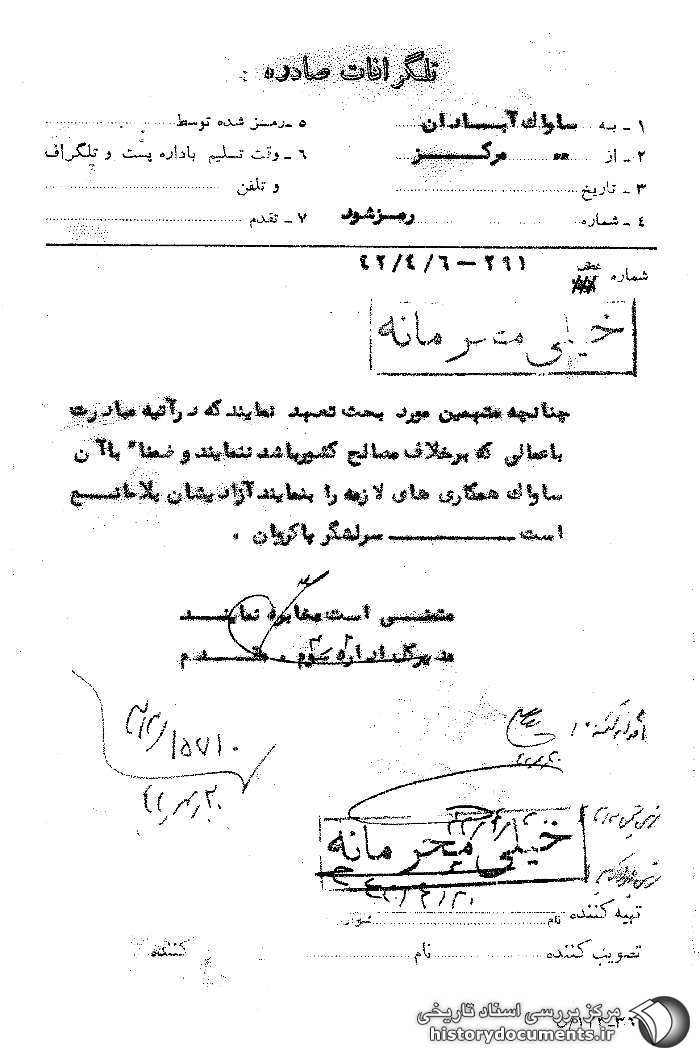 تلگرافات صادره
۱ ـ به ساواك آبادان
۲ ـ از مركز
۳ ـ تاریخ
٤ ـ شماره رمزشود
٥ ـ رمز شده توسط
٦ ـ وقت تسلیم باداره پست و تلگراف
و تلفن
۷ ـ تقدم
شماره عطف ۲۹۱ – ٤۲/٤/٦
خیلی محرمانه
چنانچه متهمین مورد بحث تعهد نمایند که درآتیه مبادرت
باعمالی که برخلاف مصالح کشورباشد ننمایند و ضمنا" باآن
ساواك همکاری های لازمه را بنمایند آزادیشان بلامانع
است ــــــ سرلشگر پاکروان .
متمنی است مخابره نمایند
مدیرکل اداره سوم . مقدم
اقدام کننده
۳۱۲/۱٥۷۱۰
خیلی محرمانه
تهیه کننده
نام
تصویب کننده
نام
کننده
مرکز بررسی اسناد تاریخی
historydocuments.ir